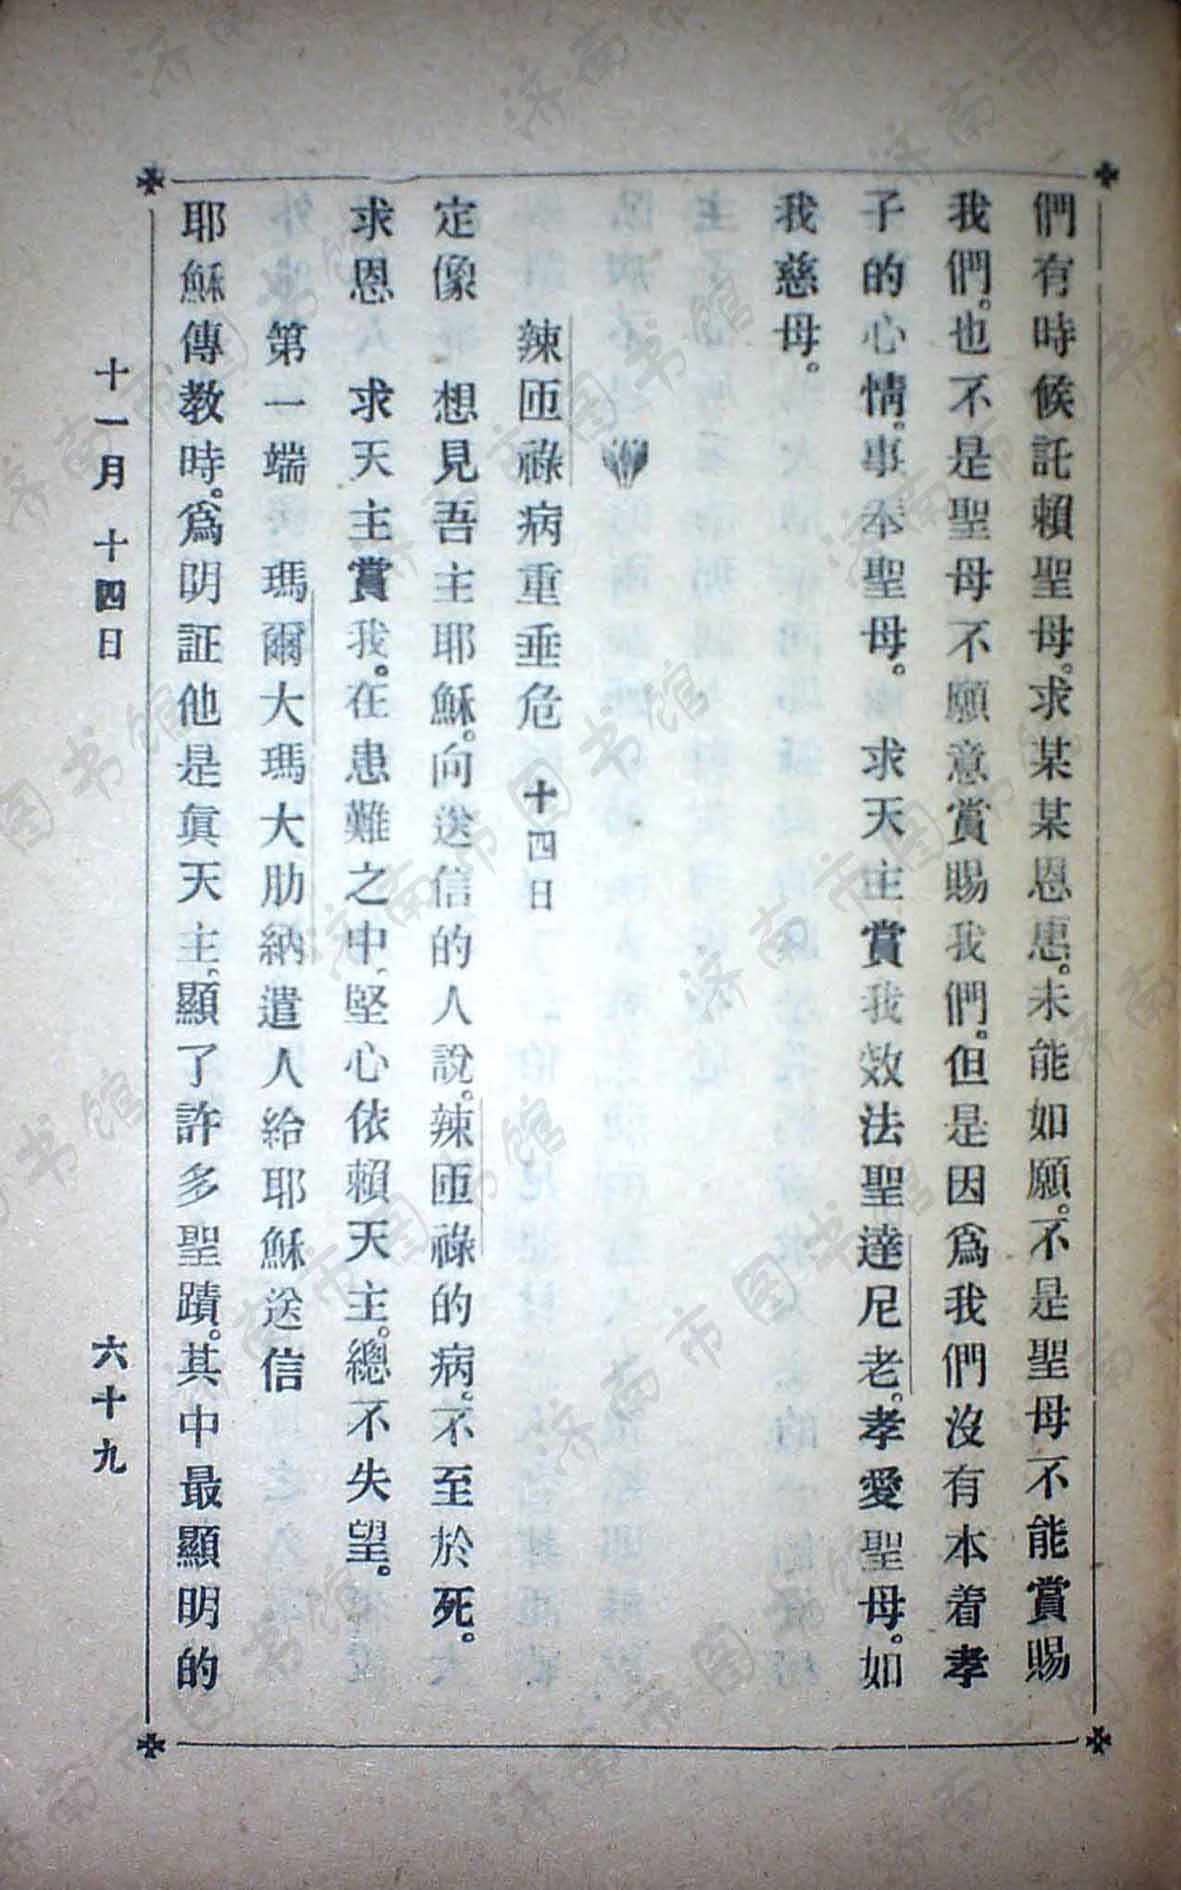 們有時候託賴聖母。求某某恩惠。未能如願。不是聖母不能賞賜
我們。也不是聖母不願意賞賜我們。但是因爲我們沒有本着孝
子的心情。事奉聖母。求天主賞我效法聖達尼老。孝愛聖母。如
我慈母。
辣匝祿病重垂危 十四日
定像 想見吾主耶穌。向送信的人說。辣匝祿的病。不至於死。
求恩 求天主賞我。在患難之中、堅心依賴天主。總不失望。
第一端 瑪爾大瑪大肋納遣人給耶穌送信
耶穌傳教時。爲明証他是眞天主、顯了許多聖蹟。其中最顯明的
十一月 十四日 六十九
济南市图书馆